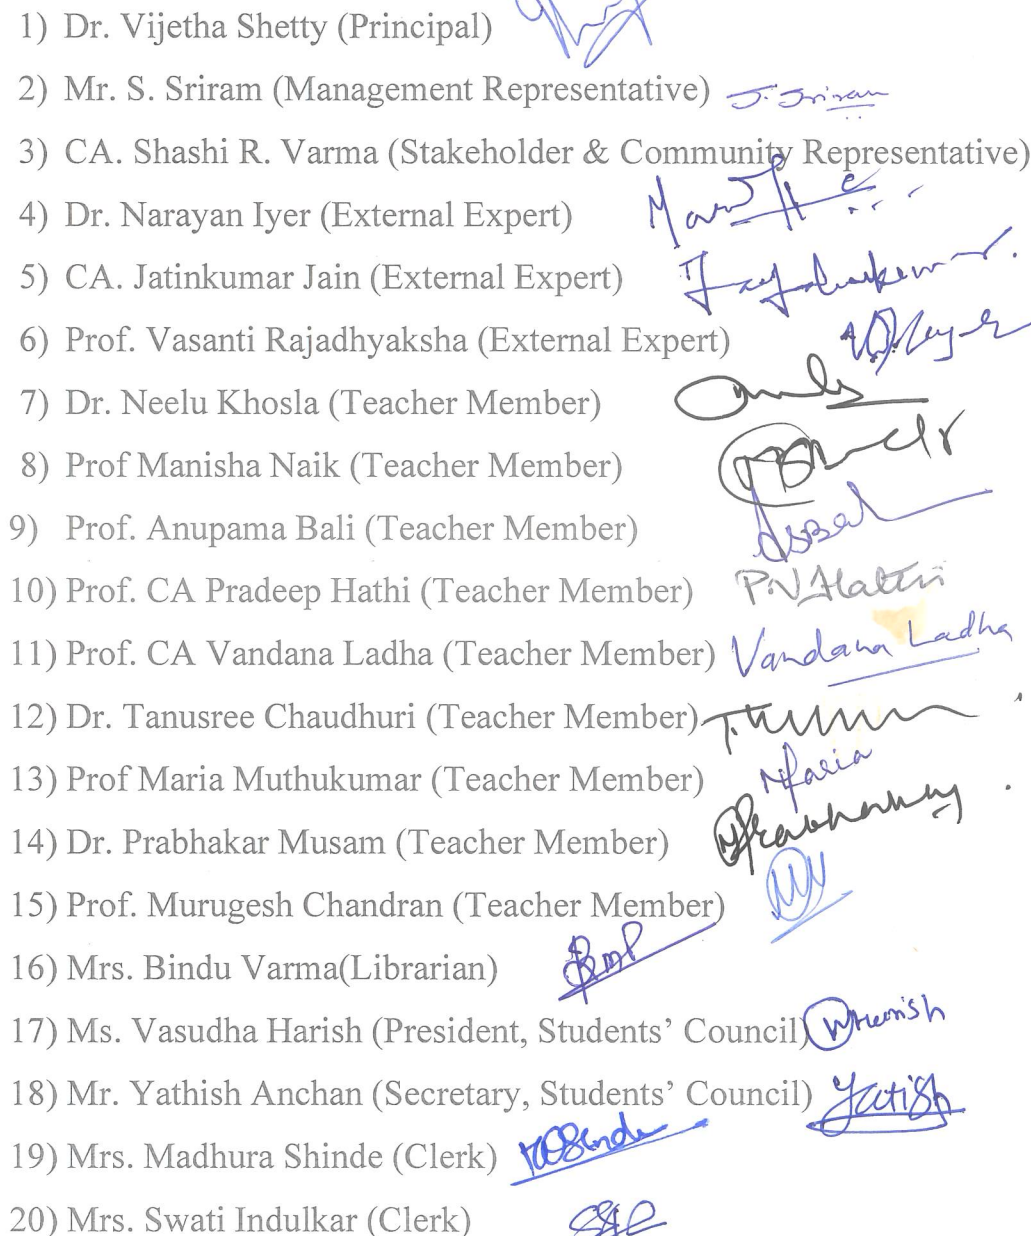 1) Dr. Vijetha Shetty (Principal)
2) Mr. S. Sriram (Management Representative) S. Sriram
3) CA. Shashi R. Varma (Stakeholder & Community Representative)
4) Dr. Narayan Iyer (External Expert)
5) CA. Jatinkumar Jain (External Expert)
6) Prof. Vasanti Rajadhyaksha (External Expert)
7) Dr. Neelu Khosla (Teacher Member)
8) Prof Manisha Naik (Teacher Member)
9) Prof. Anupama Bali (Teacher Member)
10) Prof. CA Pradeep Hathi (Teacher Member) P.N Hathi
11) Prof. CA Vandana Ladha (Teacher Member) Vandana Ladha
12) Dr. Tanusree Chaudhuri (Teacher Member)
13) Prof Maria Muthukumar (Teacher Member) Maria
14) Dr. Prabhakar Musam (Teacher Member)
15) Prof. Murugesh Chandran (Teacher Member)
16) Mrs. Bindu Varma(Librarian)
17) Ms. Vasudha Harish (President, Students’ Council)
18) Mr. Yathish Anchan (Secretary, Students’ Council) Yatish
19) Mrs. Madhura Shinde (Clerk)
20) Mrs. Swati Indulkar (Clerk)